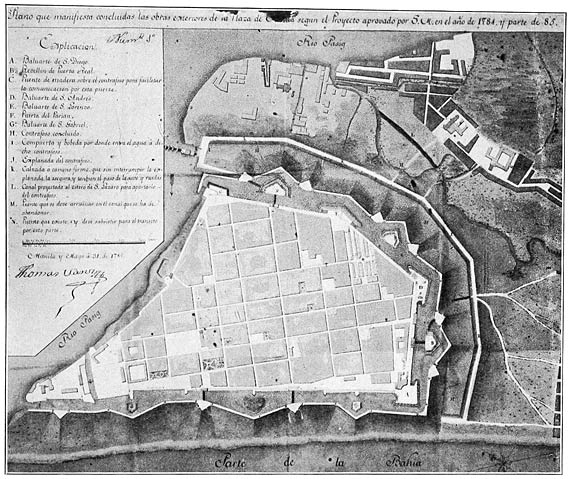 Plano que manifiesta concluidas las obras exteriores de la Plaza de segun el Proyecto aprovado por S. M. en el año de 1784, y parte de 85.
Explicacion.
A. Baluarte de S. Diego.
B. Rebellon de Puerta Real.
C. Puente de madera sobre el contrafoso para facilitar
la comunicacion por esta puerta.
D. Baluarte de S. Andres.
E. Baluarte de S. Lorenzo.
F. Puerta del Parian.
G. Baluarte de S. Gabriel.
H. Contrafoso concluido.
I. Compuerta y bobeda por donde entra el agua à di-
cho contrafoso.
J. Explanada del contrafoso.
K. Calzada o camino forma, que sin interrumpir la ex-
planada, la asegura, y
L. Canal proyectado al estero de S. Lazaro para
del contrafoso.
M. Puente que se debe arruinar en el canal que se ha de
abandonar.
N. Puente que existe, y deve subsistir para el transito
por esta parte.
Manila y Mayo à 31. de
Thomas Sanz
Rio Pasig
Rio Pasig
Parte de la Bahia